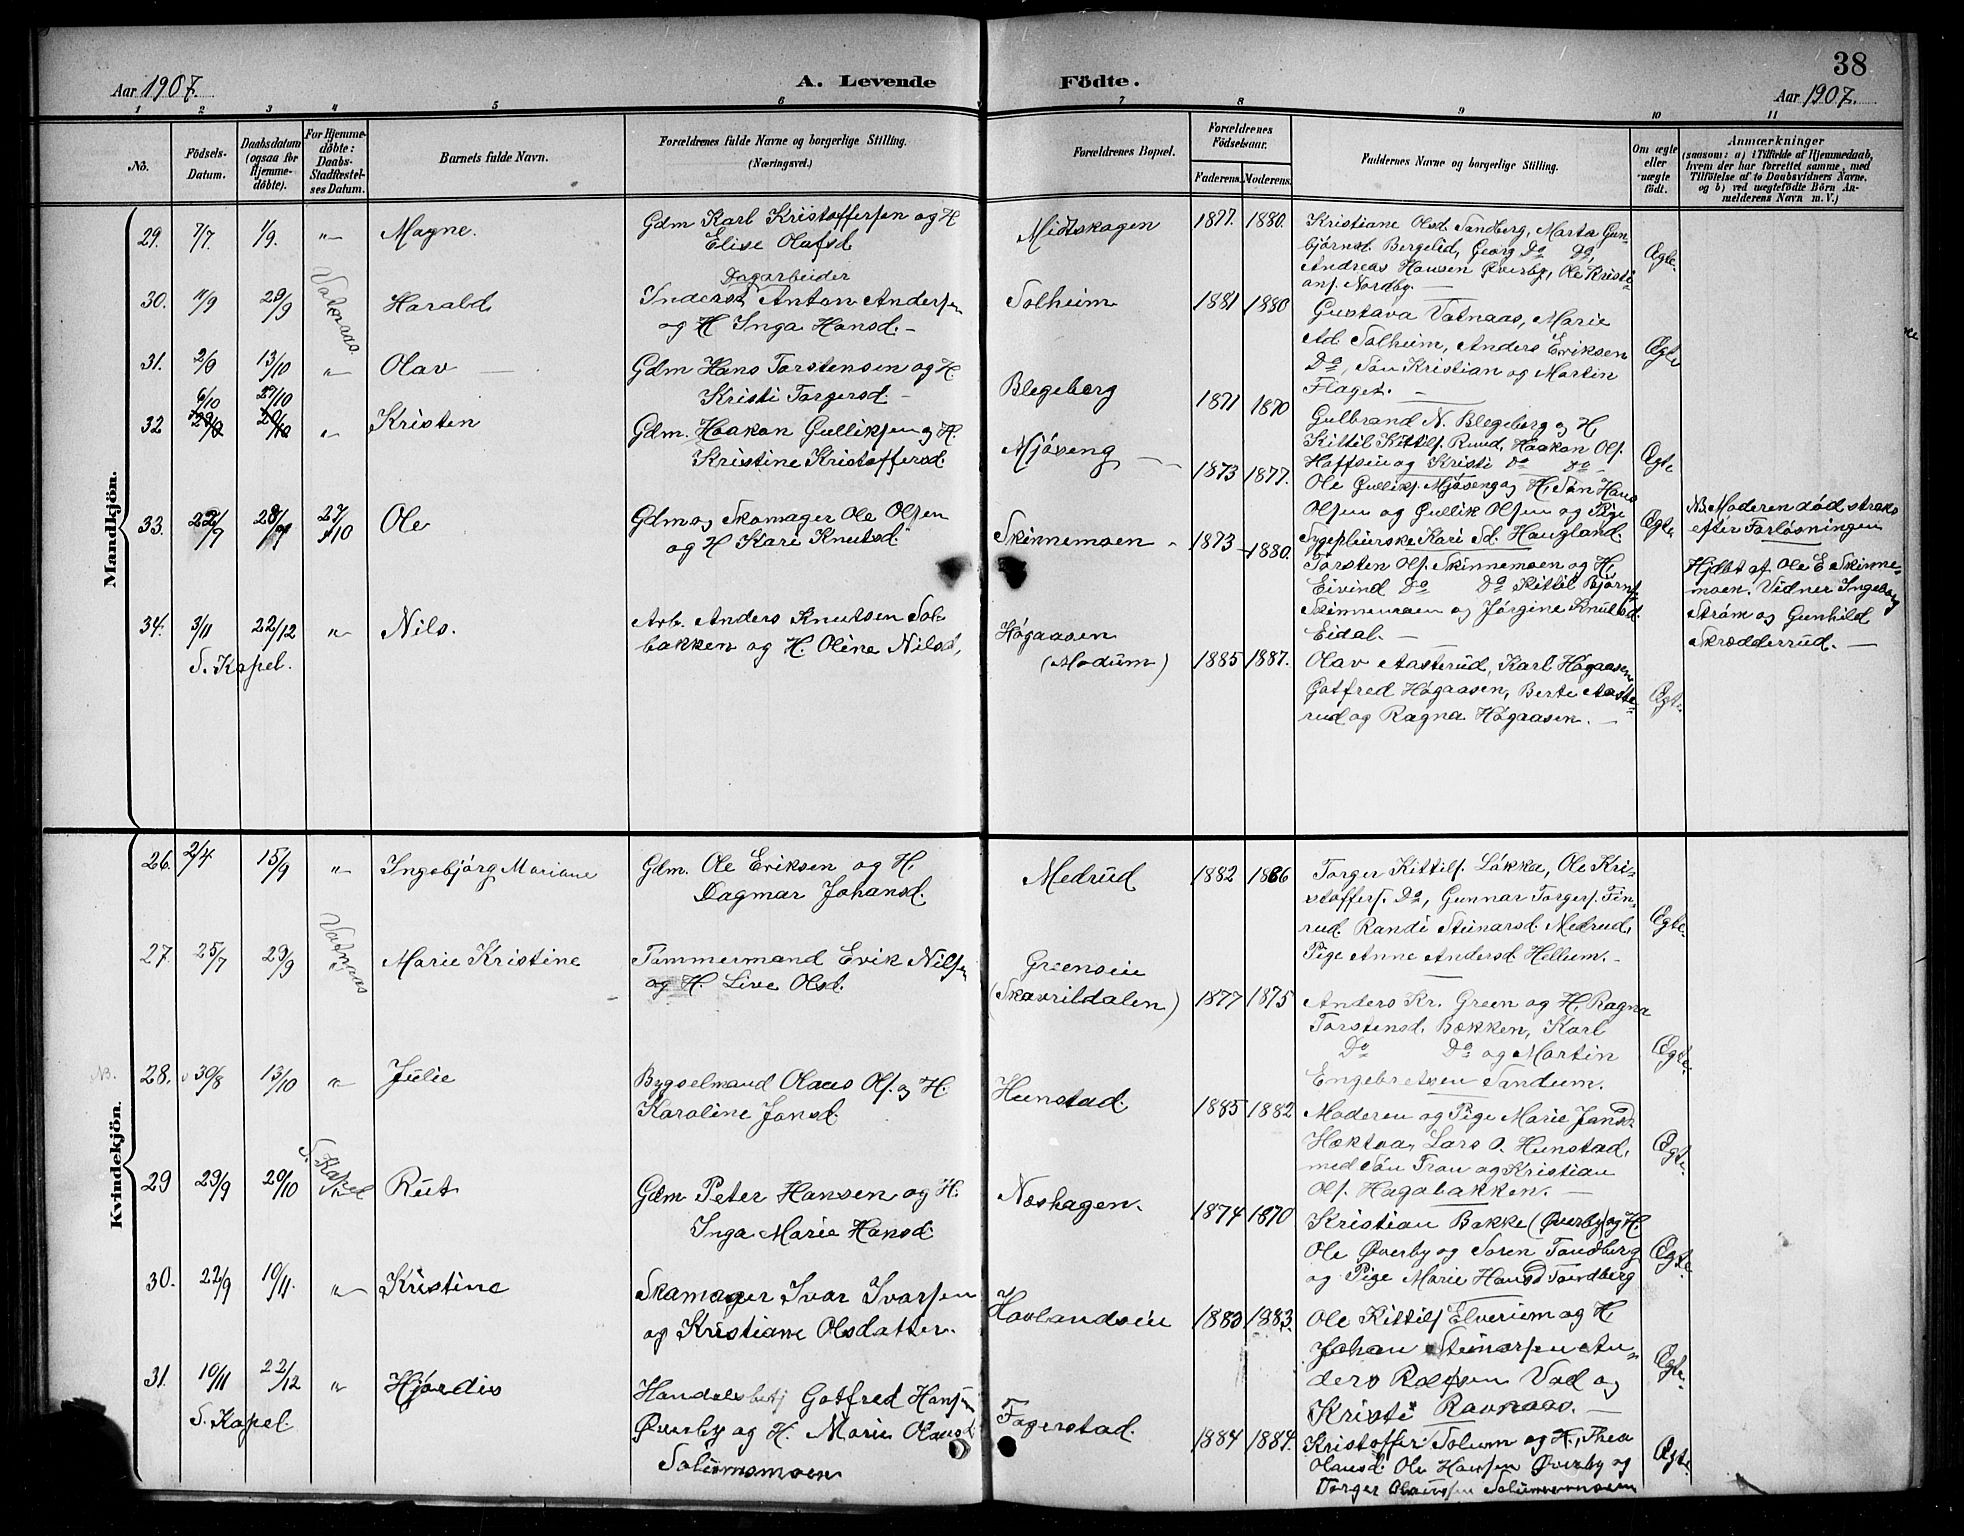 Aar 1907.
A. Levende
Födte.
38
Aar 1907.
1 2 3 4 5 6 7 8 9 10 11
No.
Födsels-Datum.
Daabsdatum (ogsaa for Hjemmedöbte).
For Hjemmedöbte: Daabs-Stadfæstelses Datum.
Barnets fulde Navn.
Forældrenes fulde Navne og borgerlige Stilling. (Næringsvei.)
Forældrenes Bopæl.
Forældrenes Födselsaar.
Faderens. Moderens.
Faddernes Navne og borgerlige Stilling.
Om ægte eller uægte født.
Anmærkninger
(saasom: a) i Tilfælde af Hjemmedaab,
hvem der har forrettet samme, med
Tilföielse af to Daabsvidners Navne,
og b) ved uægtefödte Börn An-
melderens Navn m. V.)
Mandkjön.
29. 7/7 1/9 " Magne.
Gdm Karl Kristoffersen og H.
Elise Olafsd.
Midtskogen
1877. 1880.
Kristiane Olsd. Sandberg, Marta Gun-
bjørnsd. Bergelid, Georg Do Do,
Andreas Hansen Øverby, Ole Kristi-
ans. Nordby. —
Ægte.
30. 11/9 29/9 Vatnaas. Harald
Dagarbeider
Inderst Anton Andersen
og H. Inga Hansd. —
Solheim
1881 1880
Gustava Vatnaas, Marie
Ad. Solheim, Anders Eriksen
Do, Søn Kristian og Martin
Flaget. —
Ægte
31. 2/9 13/10 " Olav —
Gdm Hans Torstensen og H.
Kristi Torgersd. —
Blegeberg
1871 1870
Gulbrand N. Blegeberg og H,
Kittil Kittils. Ruud, Haakon Ols.
Hoffsei og Kristi Do Do
Ægte
32 6/10 27/10 20/10 " Kristen
Gdm. Haakon Gulliksen og H.
Kristine Kristoffersd.
Mjøseng —
1873 1877.
Ole Gulliks. Mjøseng og H, Søn Hans
Olsen og Gullik Olsen og Pige
Sygepleierske Kari Sd. Haugland.
Ægte
33. 22/9 28/9 27/10 Ole
Gdm og Skomager Ole Olsen
og H Kari Knutsd.
Skinnemoen
1873 1880.
Torsten Ols. Skinnemoen og H,
Eivind Do Do Kittil Bjørns.
Skinnemoen og Jørgine Knutsd.
Eidal. —
NB. Moderen død straks
efter Forløsningen
Hjdbt af Ole E Skinne-
moen. Vidner Ingeborg
Strøm og Gunhild
Skrædderrud. —
34. 3/11 22/12 " Nils.
S. Kapel.
Arb. Anders Knutsen Sol-
bakken og H. Oline Nilsd,
Høgaasen
(Modum)
1885 1887.
Olav Aasterud, Karl Høgaasen,
Gotfred Høgaasen, Berte Aaste-
rud og Ragna Høgaasen. —
Ægte.
Kvindekjön.
26. 2/4 15/9 " Ingebjørg Mariane
Gdm. Ole Eriksen og H.
Dagmar Johansd.
Medrud
1882 1886
Torger Kittils. Løkka, Ole Kri-
stoffers. Do, Gunnar Torgers. Fin-
rud, Randi Steinarsd. Medrud,
Pige Anne Andersd Hellum. —
Ægte.
27. 25/7 29/9 Vatnaas Marie Kristine
Tømmermand Erik Nilsen
og H. Live Olsd.
Greenseie
(Skavrildalen)
1877 1875
Anders Kr. Green og H, Ragna
Torstensd. Bækken, Karl
Do Do og Martin
Engebretsen Sandum.
Ægte.
NB. 28. 30/8 13/10 " Julie
Bygselmand Olaus Ols. og H.
Karoline Jansd.
Hunstad.
1885 1882
Moderen og Pige Marie Jansd.
Hæktoa, Lars O. Hunstad,
med Søn Tron og Kristian
Ols. Hagabakken. —
Ægte.
29 29/9 20/10 S. Kapel Rut
Gdm Peter Hansen og H.
Inga Marie Hansd.
Næshagen.
1874 1870
Kristian Bakke (Øverby) og H.
Ole Øverby og Søren Tandberg
og Pige Marie Hansd Tandberg
Ægte.
30. 22/9 10/11. " Kristine
Skomager Ivar Ivarsen
og Kristiane Olsdatter.
Hovlandseie
1880 1883.
Ole Kittils Elverum og H,
Johan Steinarsen An-
ders Vad og
Kristi Ravnaas. —
Ægte.
31. 10/11 22/12 " Hjørdis
S. Kapel.
Handelsbetj Gotfred Hansen
Øverby og H. Marie Olausd
Solumsmoen
Fagerstad.
1884 1884.
Kristoffer Solum og H, Thea
Olausd. Ole Hansen Øverby og
Torger Olaussen Solumsmoen
Ægte.